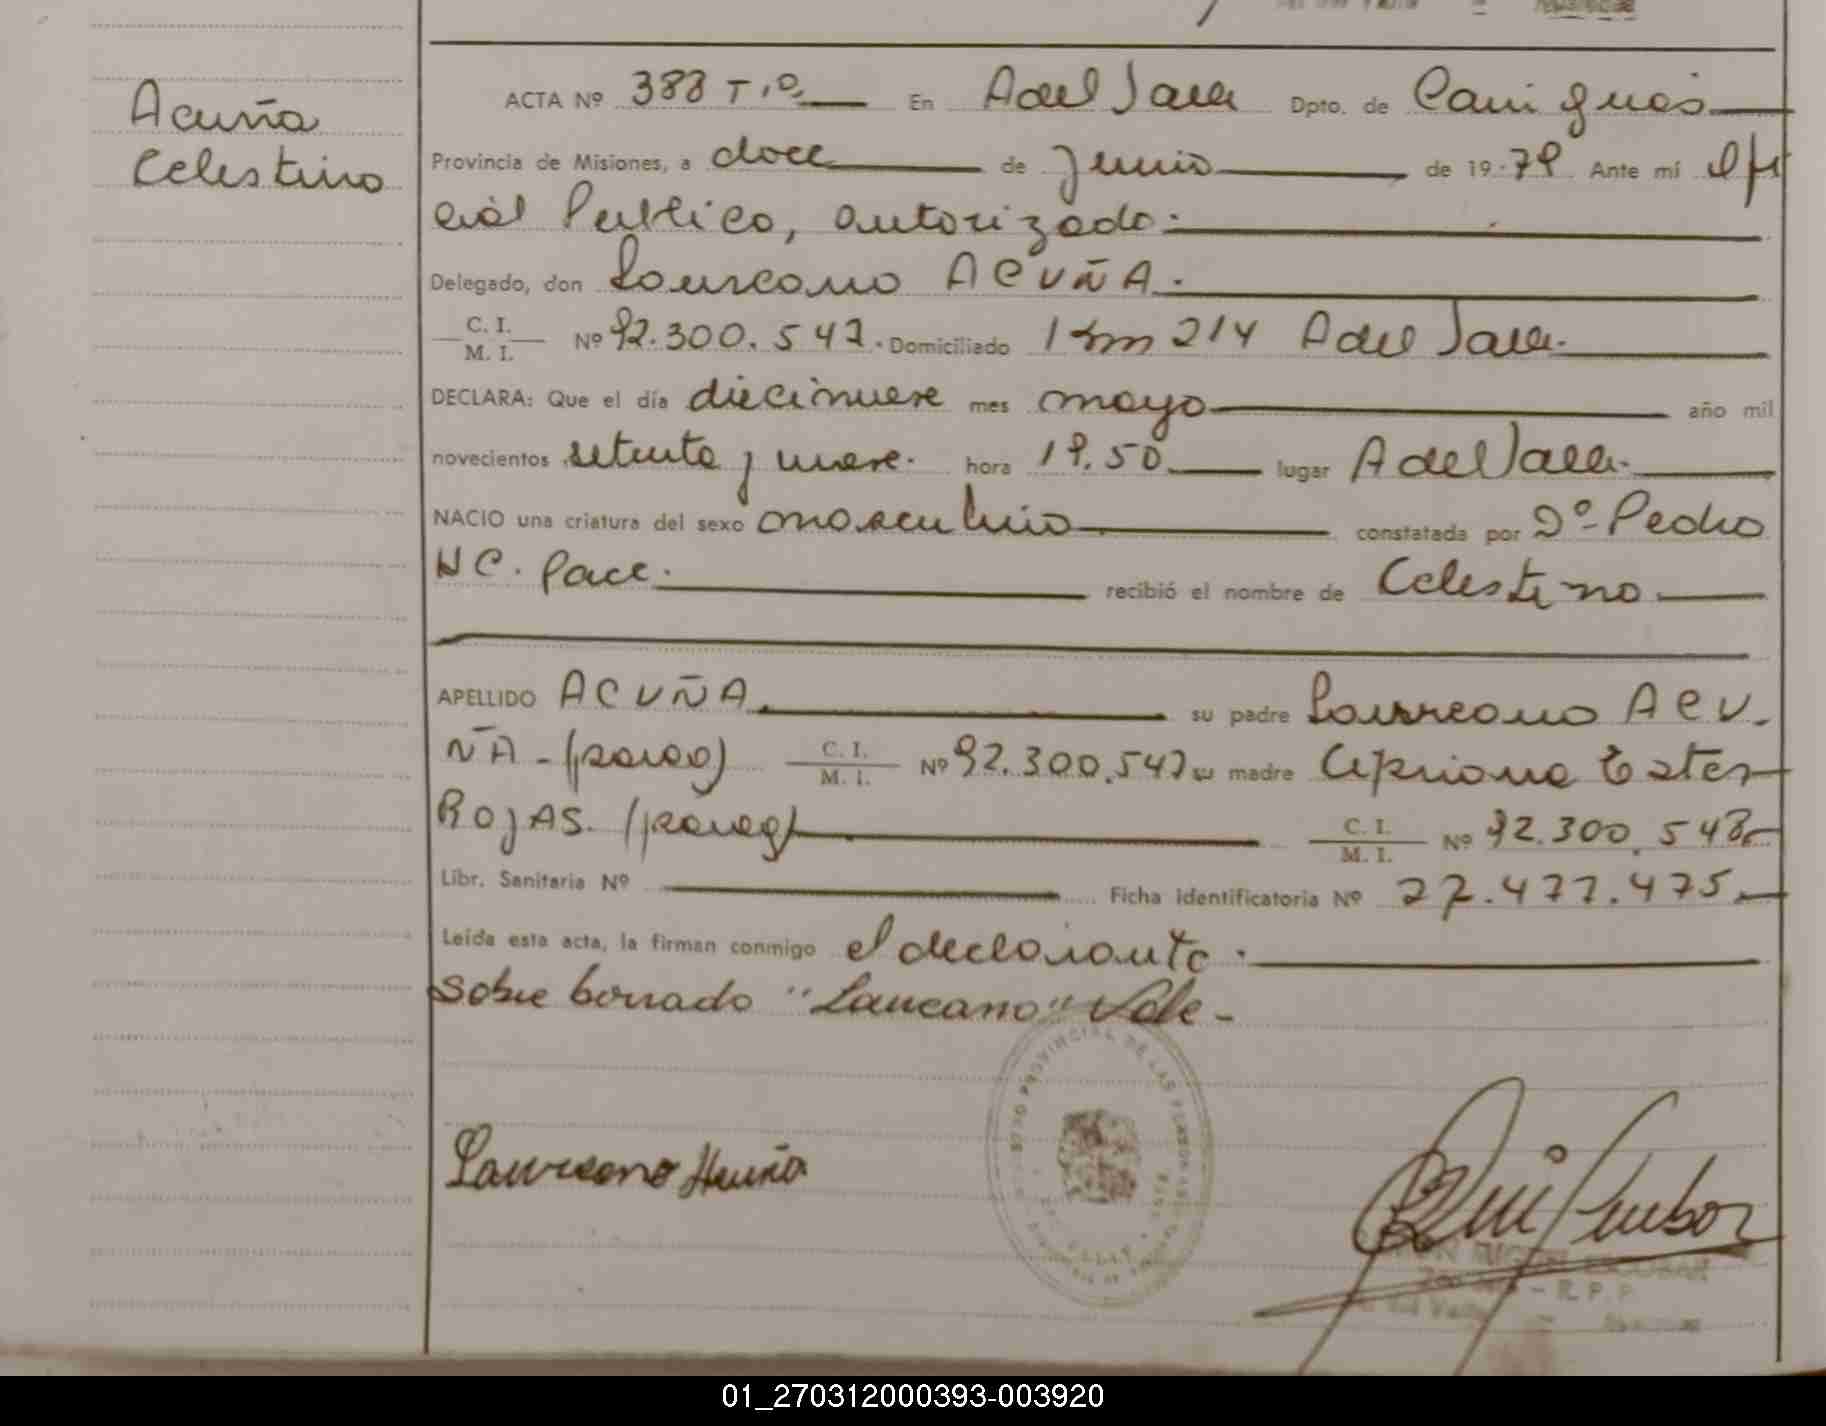 Acuña
Celestino
ACTA Nº 388 T.1º. En A del Valle Dpto. de Cainguás
Provincia de Misiones, a doce de Junio de 1979 Ante mí Ofi
cial Publico, autorizado.
Delegado, don Laureano ACUÑA.
C. I. / M. I. Nº 92.300.547. Domiciliado Km 214 A del Valle.
DECLARA: Que el día diecinueve mes mayo año mil
novecientos setenta y nueve. hora 19.50 lugar A del Valle.
NACIO una criatura del sexo masculino constatada por Dº Pedro
HC. Pace. recibió el nombre de Celestino
APELLIDO ACUÑA su padre Laureano ACU-
ÑA - (parag) C. I. / M. I. Nº 92.300.547 su madre Cipriana Ester
ROJAS. (parag) C. I. / M. I. Nº 92.300.548
Libr. Sanitaria Nº Ficha identificatoria Nº 27.477.475
Leída esta acta, la firman conmigo el declarante.
Sobre borrado "Laureano" Vale -
Laureano Acuña
MIGUEL ESCOBAR
R. P. P.
01_270312000393-003920